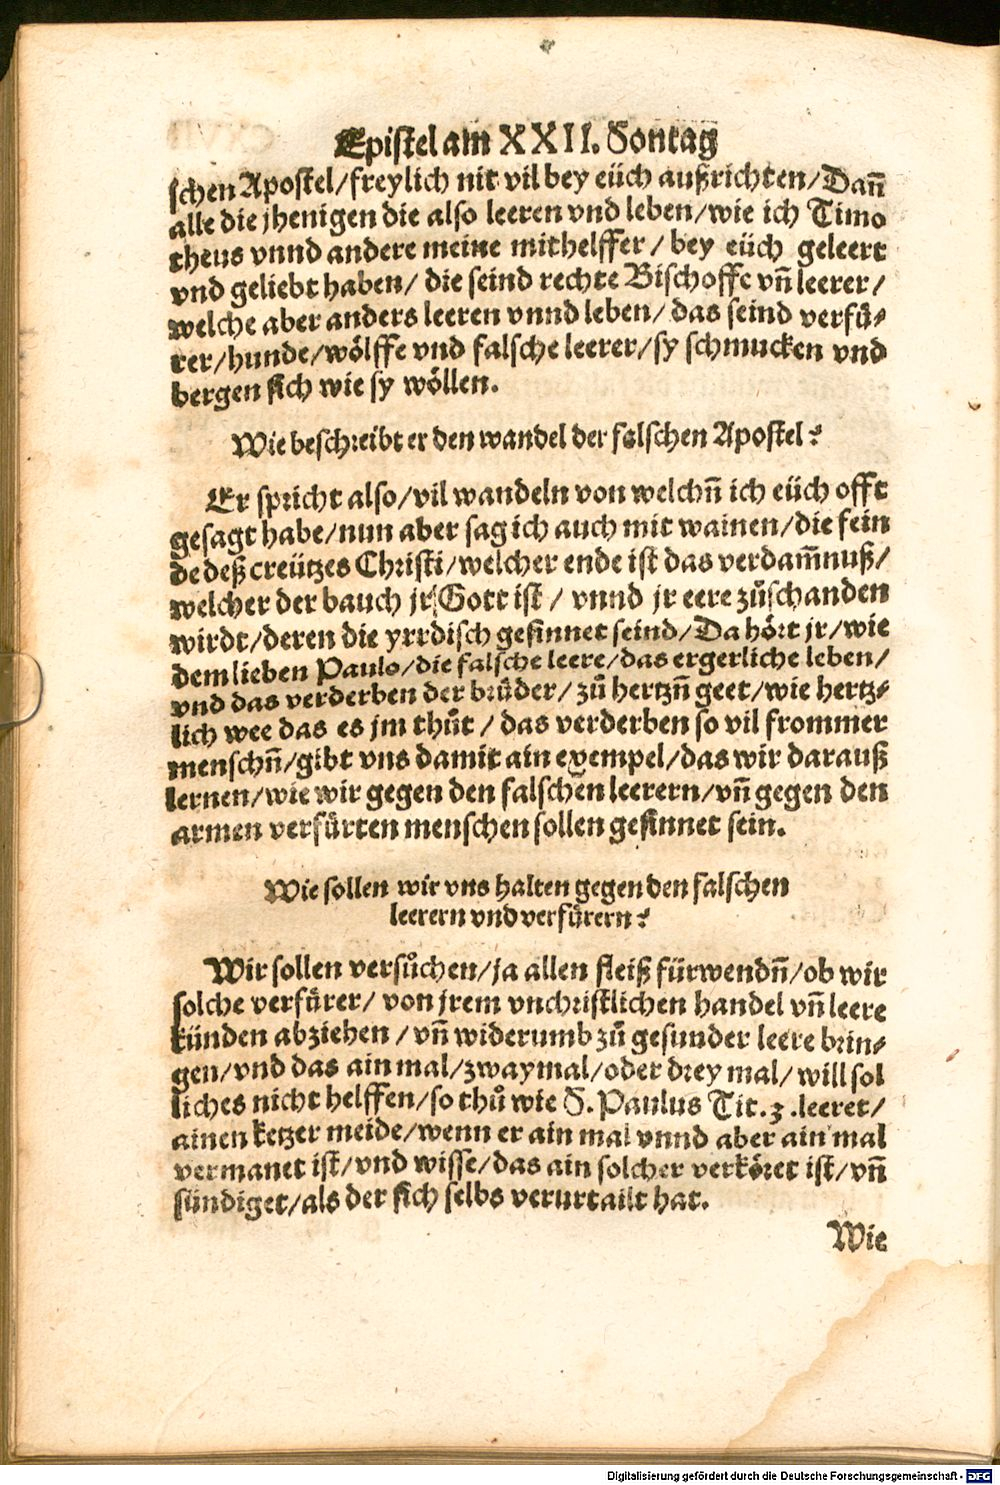 Epistel am XXII. Sontag
schen Apostel/freylich nit vil bey eüch außrichten/Dañ
alle die jhenigen die also leeren vnd leben/wie ich Timo
theus vnnd andere meine mithelffer / bey eüch geleert
vnd geliebt haben/ die seind rechte Bischoffe vñ leerer/
welche aber anders leeren vnnd leben/ das seind verfü⸗
rer/hunde/wölffe vnd falsche leerer/sy schmucken vnd
bergen sich wie sy wöllen.
Wie beschreibt er den wandel der falschen Apostel?
Er spricht also/vil wandeln von welchñ ich eüch offt
gesagt habe/nun aber sag ich auch mit wainen/die fein
de deß creützes Christi/welcher ende ist das verdam̃nuß/
welcher der bauch jr Gott ist / vnnd jr eere zůschanden
wirdt/deren die yrrdisch gesinnet seind/Da hört jr/wie
dem lieben Paulo/die falsche leere/das ergerliche leben/
vnd das verderben der brüder/ zů hertzñ geet/wie hertz⸗
lich wee das es jm thůt / das verderben so vil frommer
menschñ/gibt vns damit ain exempel/das wir darauß
lernen/wie wir gegen den falschen leerern/vñ gegen den
armen verfürten menschen sollen gesinnet sein.
Wie sollen wir vns halten gegen den falschen
leerern vnd verfürern?
Wir sollen versůchen/ja allen fleiß fürwendñ/ob wir
solche verfürer/ von jrem vnchristlichen handel vñ leere
künden abziehen / vñ widerumb zů gesunder leere brin⸗
gen/vnd das ain mal/zway mal/oder drey mal/ will sol
liches nicht helffen/so thů wie S. Paulus Tit. 3 .leeret/
ainen ketzer meide/wenn er ain mal vnnd aber ain mal
vermanet ist/vnd wisse/das ain solcher verköret ist/vñ
sündiget/als der sich selbs verurtailt hat.
Wie
Digitalisierung gefördert durch die Deutsche Forschungsgemeinschaft - DFG